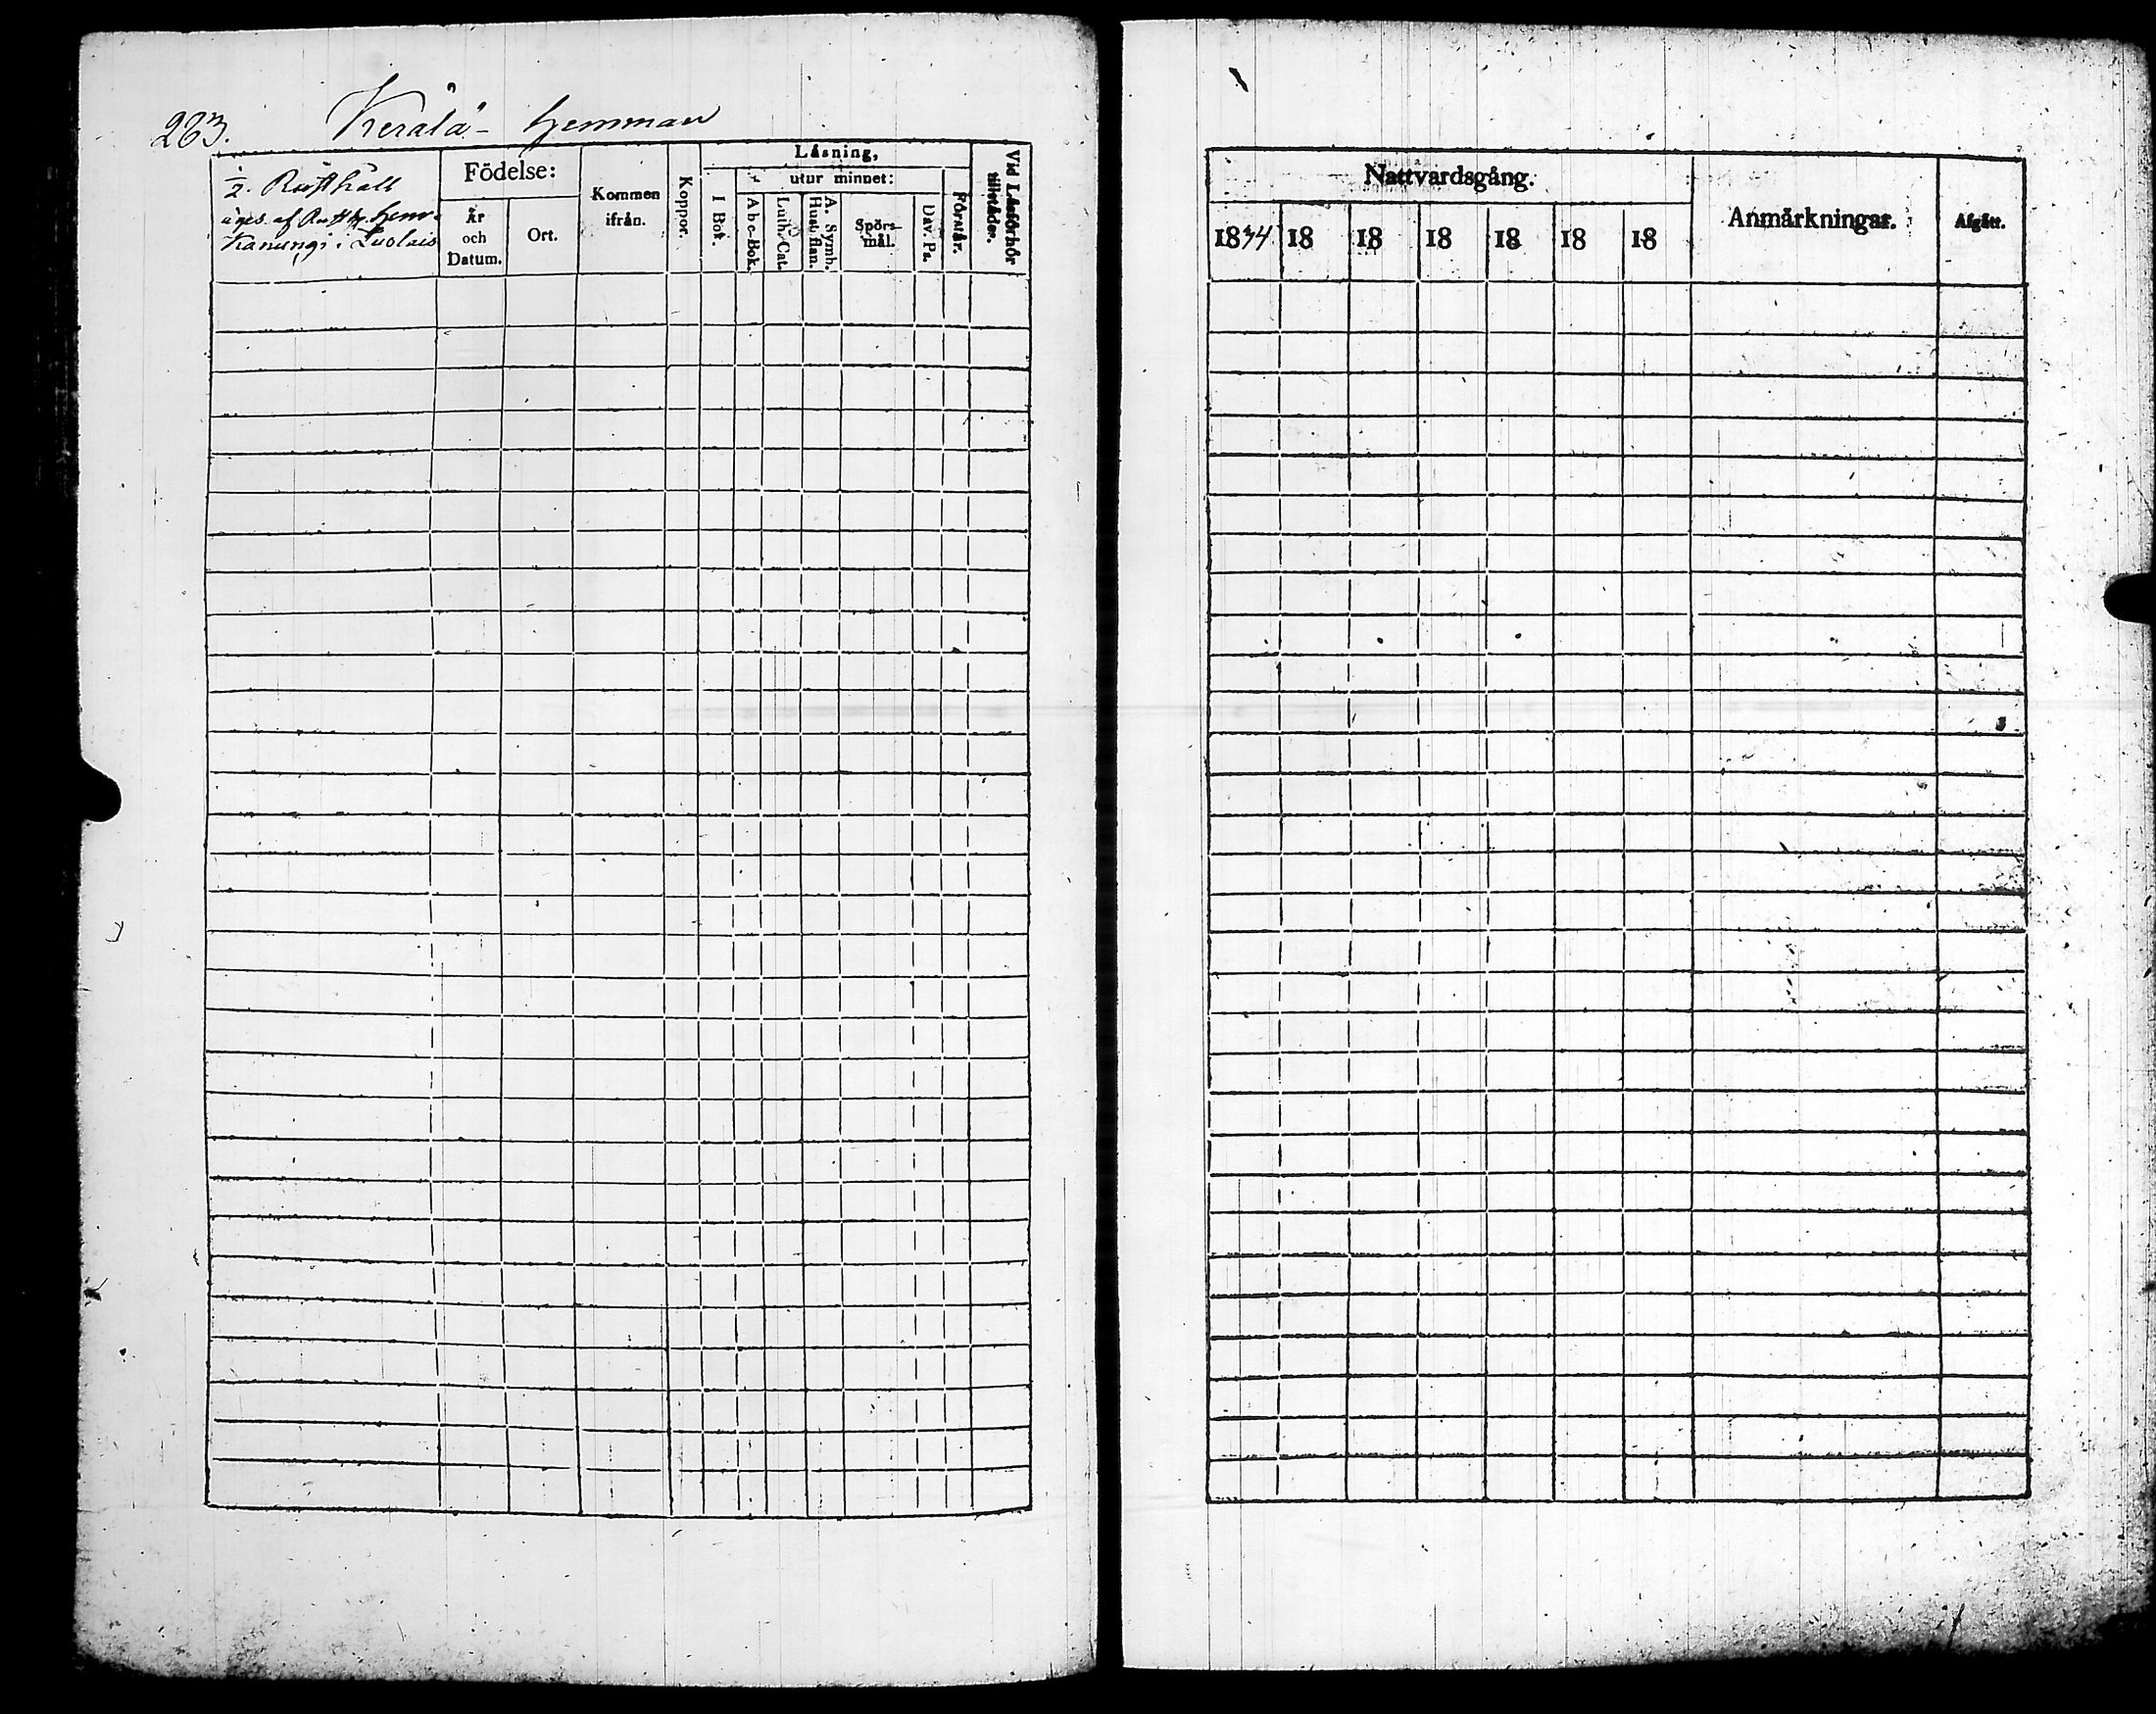 283. Kerälä- hemman
1/2. Rusthåll
äges af Rusth. hemr.
Kanungi i Luolais
Födelse:
År och Datum.
Ort.
Kommen ifrån.
Koppor.
Läsning,
utur minnet:
I Bok.
Abc-Bok.
Luth. Cat.
A. Symb. Hust. flan.
Spörs-mål.
Dav. Ps.
Förstår.
Vid Läsförhör tillstädes.
Nattvardsgång.
1834 18 18 18 18 18 18
Anmärkningar.
Afgått.